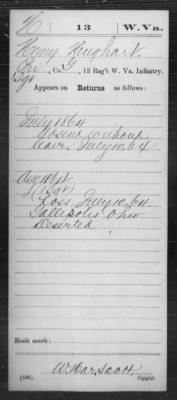 H 13 W.Va.
Henry Heughart.
Co. G, 13 Reg't W. Va. Infantry.
Sgt
Appears on Returns as follows:
July 1864
Absent without
leave. July 10, 64
Aug 1864
(Sgt)
Loss July 10, 64
Gallipolis Ohio
Deserted
Book mark:
(546) Copyist.